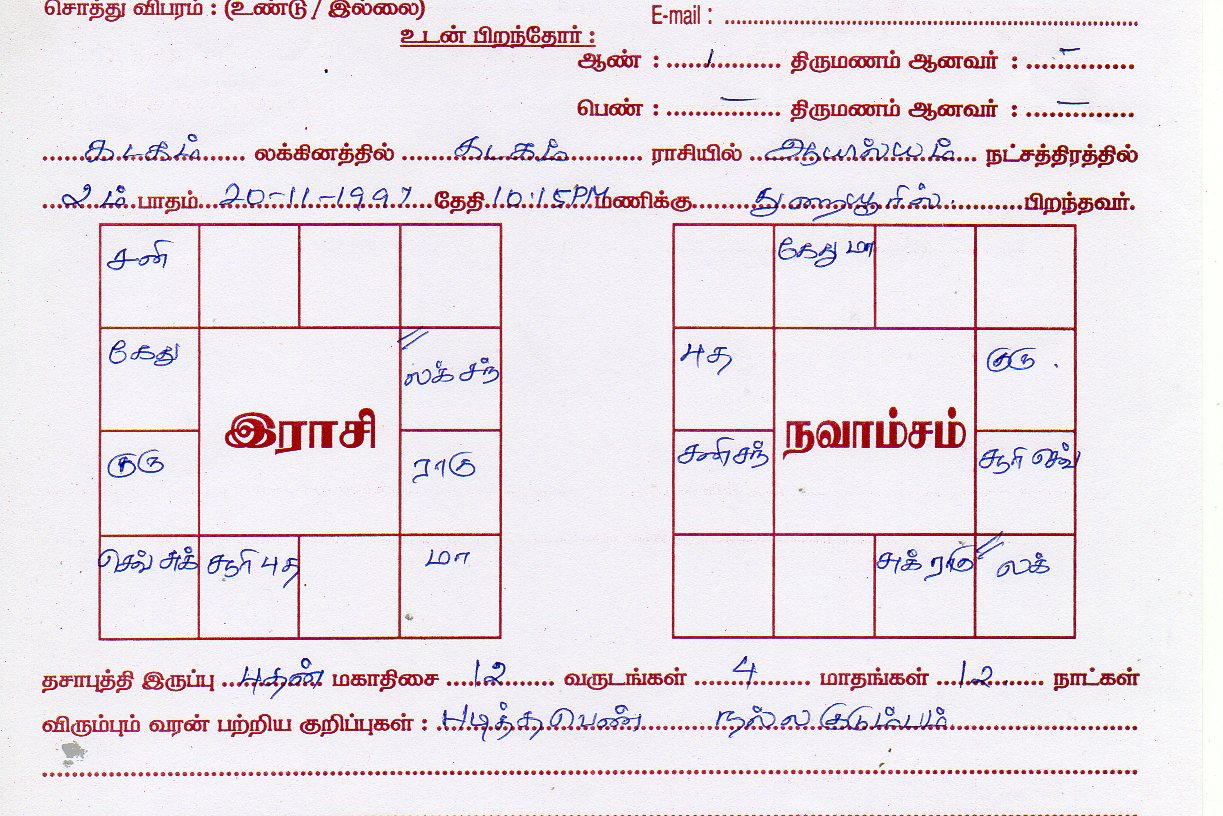 சொத்து விபரம் : (உண்டு / இல்லை)
E-mail :
உடன் பிறந்தோர் :
ஆண் : 1 திருமணம் ஆனவர் : –
பெண் : – திருமணம் ஆனவர் : –
கடகம் லக்கினத்தில் கடகம் ராசியில் ஆயில்யம் நட்சத்திரத்தில்
2ம் பாதம் 20-11-1997 தேதி 10:15PM மணிக்கு பிறந்தவர்.
சனி
கேது
லக் சந்
இராசி
குரு
ராகு
செவ் சுக்
சூரி புத
மா
கேது மா
புத
குரு
நவாம்சம்
சனி சந்
சூரி செவ்
சுக் ராகு
லக்
தசாபுத்தி இருப்பு புதன் மகாதிசை 12 வருடங்கள் 4 மாதங்கள் 12 நாட்கள்
விரும்பும் வரன் பற்றிய குறிப்புகள் : படித்த பெண் நல்ல குடும்பம்